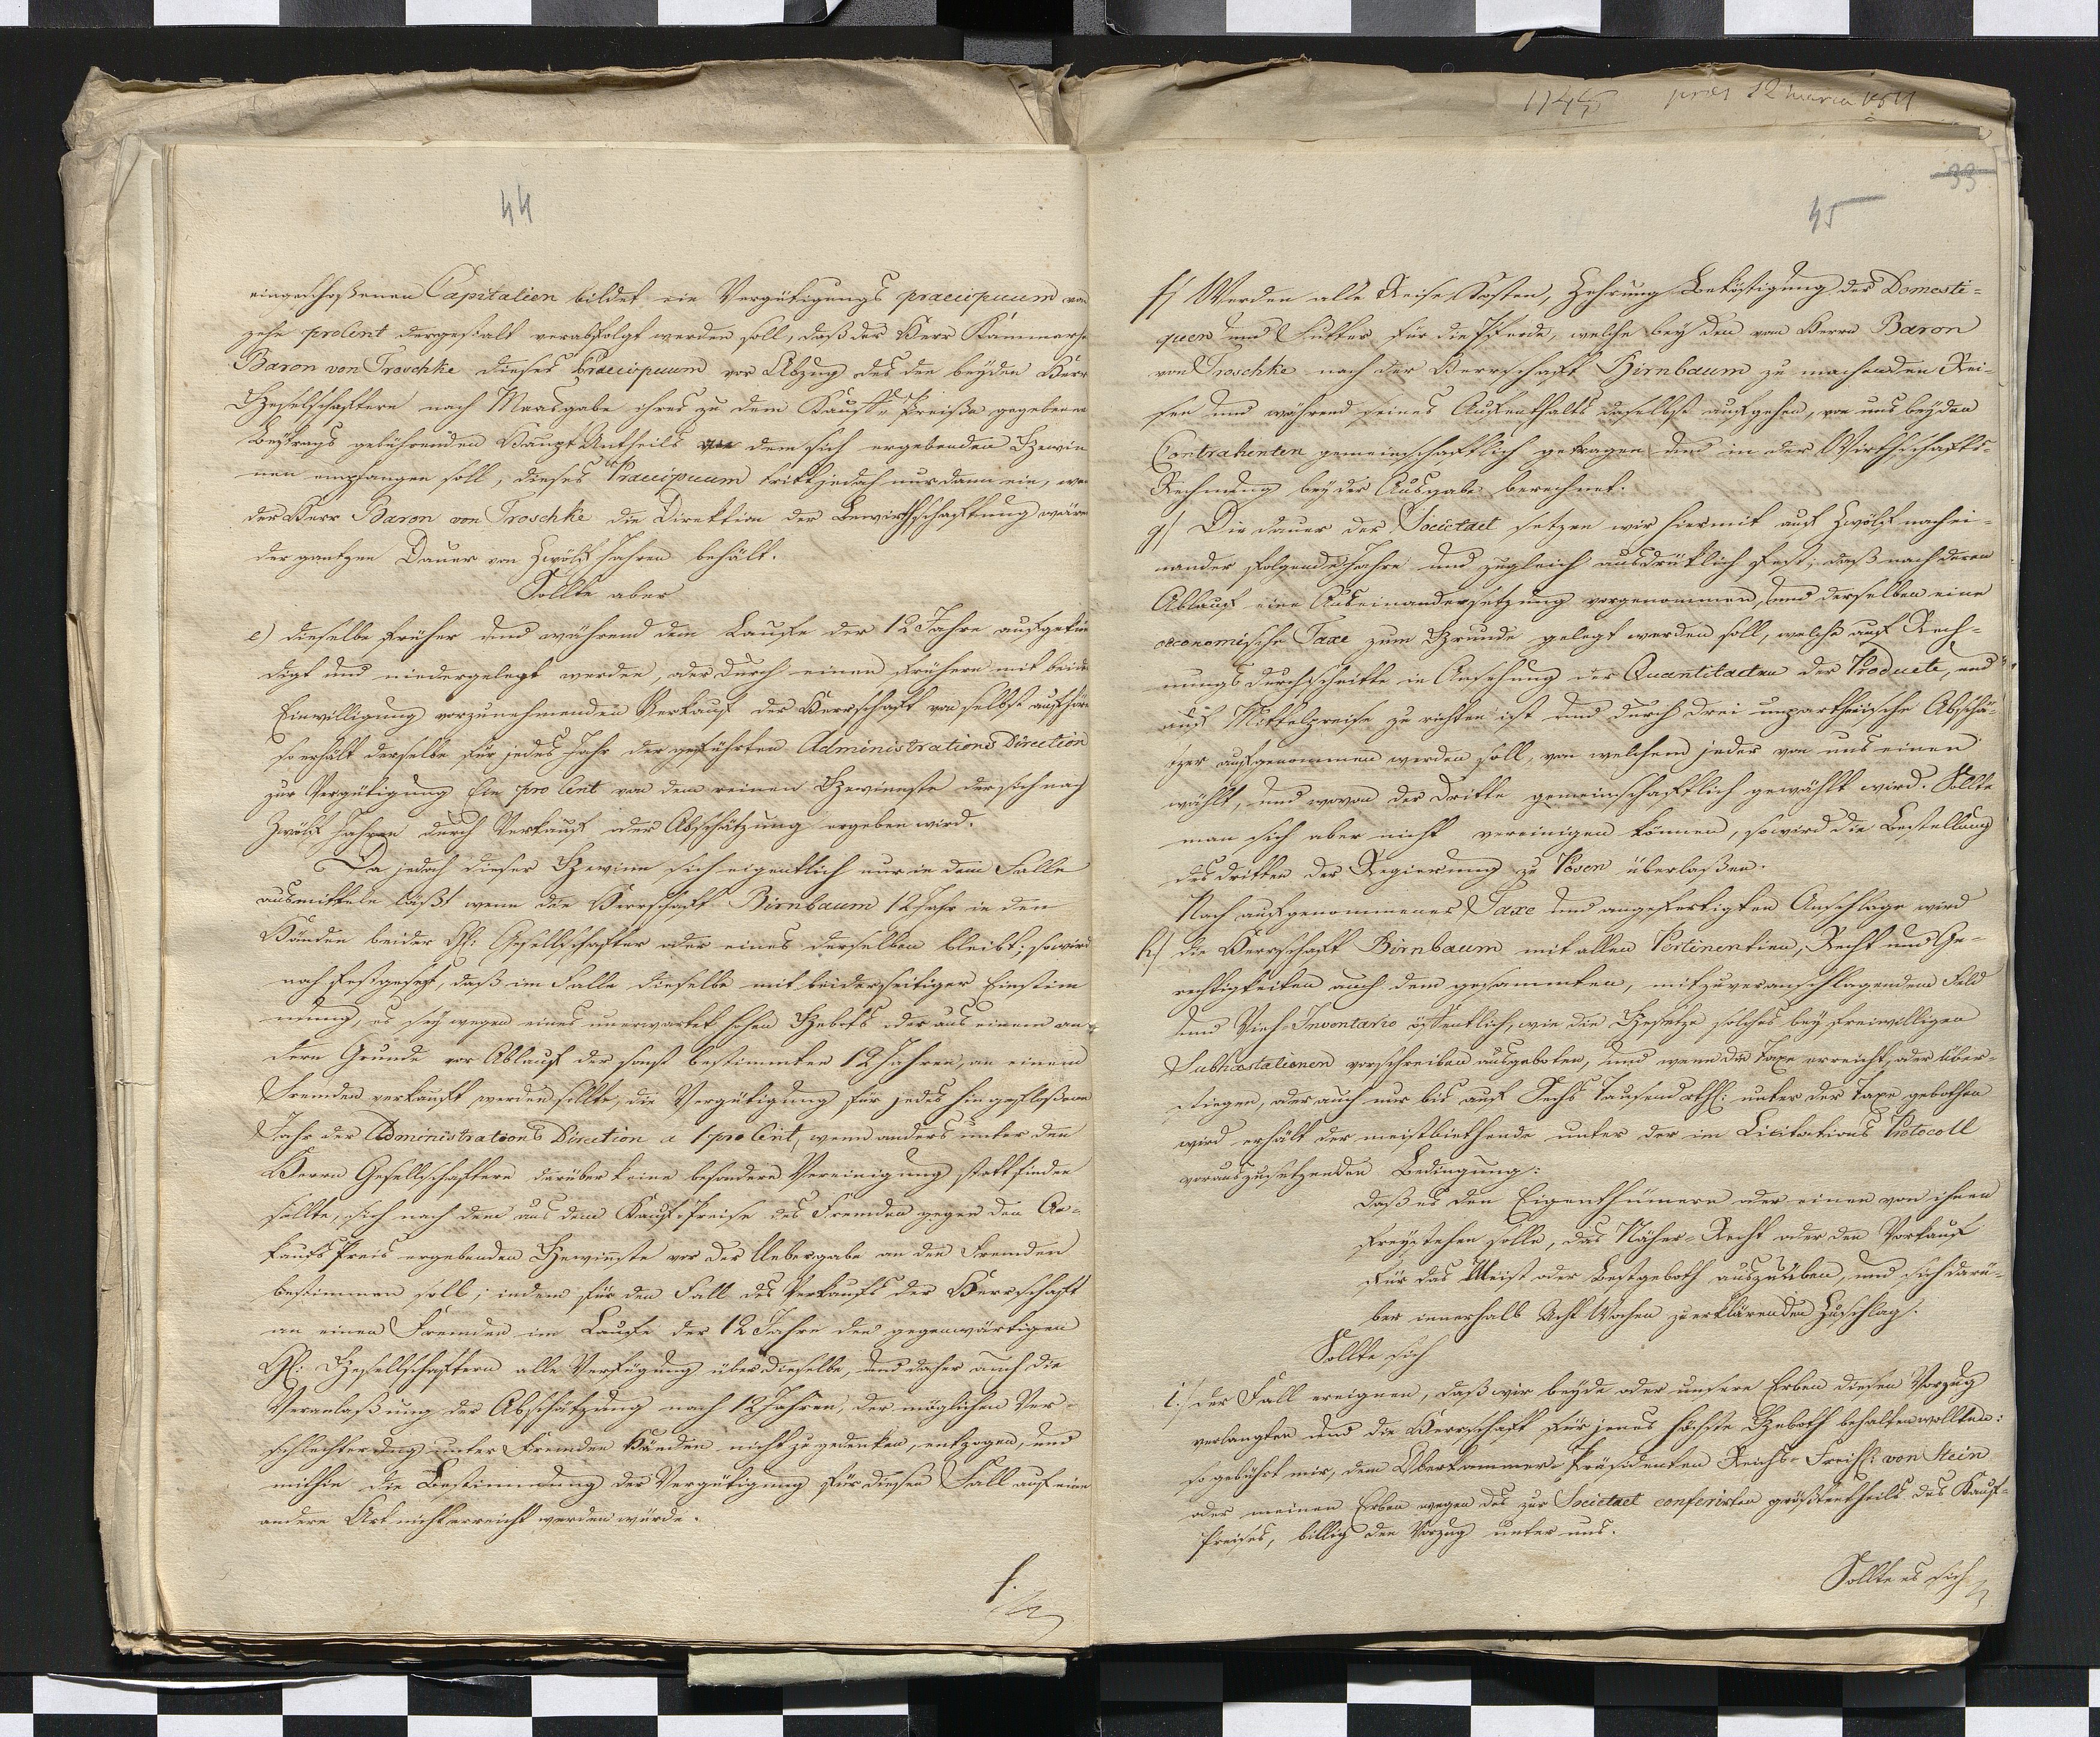 44
eingeschoßenen Capitalien bildet ein Vergütigungs praecipuum von
zehn proCent dergestalt verabfolgt werden soll, daß der Herr Kammerh
Baron von Troschke dieses Praecipuum vor Abzug des den beyden Herr
Gesellschaftern nach Maasgabe ihres zu dem Kauff-Preiße gegebenen
Beytrags gebührenden Haupt Antheils dem sich ergebenden Gewin
nen empfangen soll, dieses Praecipuum tritt jedoch nur dann ein, wen
der Herr Baron von Troschke die Direktion der Bewirthschaftung wären
der gantzen Dauer von Zwölf Jahren behält.
Sollte aber
e) dieselbe früher und während dem Laufe der 12 Jahre aufgekün
digt und niedergelegt werden, oder durch einen frühern mit beider
Einwilligung vorzunehmenden Verkauf der Herrschaft von selbst aufhören
so erhält derselbe für jedes Jahr der geführten Administrations Direction
zur Vergütigung Ein pro Cent von dem reinen Gewinnste der sich nach
Zwölf Jahren durch Verkauf oder Abschätzung ergeben wird.
Da jedoch dieser Gewinn sich eigentlich nur in dem Falle
ausmitteln läßt wenn die Herrschaft Birnbaum 12 Jahr in den
Händen beider HH: Gesellschafter oder eines derselben bleibt; so wird
noch festgesetzt, daß im Falle dieselbe mit beiderseitiger Einstim
mung, es sey wegen eines unerwartet hohen Gebots oder aus einem an
dern Grunde vor Ablauf der sonst bestimmten 12 Jahren, an einem
Fremden verkauft werden sollte, die Vergütigung für jedes hingefloßene
Jahr der Administrations Direction a 1 pro Cent, wenn anders unter den
Herrn Gesellschaftern darüber keine besondere Vereinigung statt finden
sollte, sich nach dem aus dem Kauf-Preise des Fremden gegen den An-
kaufs Preis ergebenden Gewinnste vor der Uebergabe an den Fremden
bestimmen soll; indem für den Fall des Verkaufs der Herrschaft
an einen Fremden im Laufe der 12 Jahre den gegenwärtigen
HH: Gesellschaftern alle Verfügung über dieselbe, und daher auch die
Veranlaßung der Abschätzung nach 12 Jahren, der möglichen Ver-
schlechterung unter Fremden Händen nicht zu gedenken, entzogen, und
mithin die Bestimmung der Vergütigung für diesen Fall auf eine
andere Art nicht erreicht werden würde.
f.
1145
33
45
f/ Werden alle Reise Kosten, Zehrung Beköstigung der Domesti-
quen und Futter für die Pferde, welche bey den vom Herrn Baron
von Troschke nach der Herrschaft Birnbaum zu machenden Rei-
sen und während seines Aufenthalts daselbst aufgehen, von uns beyden
Contrahenten gemeinschaftlich getragen und in der Wirthschafts-
Rechnung bey der Ausgabe berechnet.
g/ Die dauer der Societaet setzen wir hiermit auf Zwölf nach ei-
nander folgende Jahre und zugleich ausdrüklich fest, daß nach deren
Ablauf eine Auseinandersetzung vorgenommen, und derselben eine
oeconomische Taxe zum Grunde gelegt werden soll, welche auf Rech-
nungs durchschnitte in Ansehung der Quantitaeten der Producte, und
auf Mittelpreise zu richten ist und durch drei unpartheiische Abschä-
tzer aufgenommen werden soll, von welchem jeder von uns einen
wählt, und wovon der dritte gemeinschaftlich gewählt wird. Sollte
man sich aber nicht vereinigen können, so wird die Bestellung
des dritten der Regierung zu Posen überlaßen.
Nach aufgenommener Taxe und angefertigten Anschlage wird
h) die Herrschaft Birnbaum mit allen Pertinentien, Recht und Ge-
rechtigkeiten auch dem gesammten, mitzuveranschlagendem Feld
und Vieh-Inventario öffentlich, wie die Gesetze solches bey freiwilligen
Subhastationen vorschreiben ausgeboten, und wenn die Taxe erreicht, oder über-
stiegen, oder auch nur bis auf Sechs tausend rthl: unter der Taxe gebothen
wird erhält der meistbiethende unter der im Licitations Protocoll
vorauszusetzenden Bedingung:
daß es den Eigenthümern oder einen von ihnen
freystehen solle, das Näher-Recht oder den Vorkauf
für das Meist oder Bestgeboth auszuüben, und sich darü-
ber innerhalb Acht Wochen zu erklären den Zuschlag.
Sollte sich
i.) der Fall ereignen, daß wir beyde oder unsere Erben diesen Vorzug
verlangten und die Herrschaft für jenes höchste Geboth behalten wollten:
so gebührt mir, dem Oberkammer-Präsidenten Reichs-Freih: von Stein
oder meinen Erben wegen des zur Societaet conferirten größtentheils des Kauf-
Preises, billig den Vorzug unter uns.
Sollte es sich